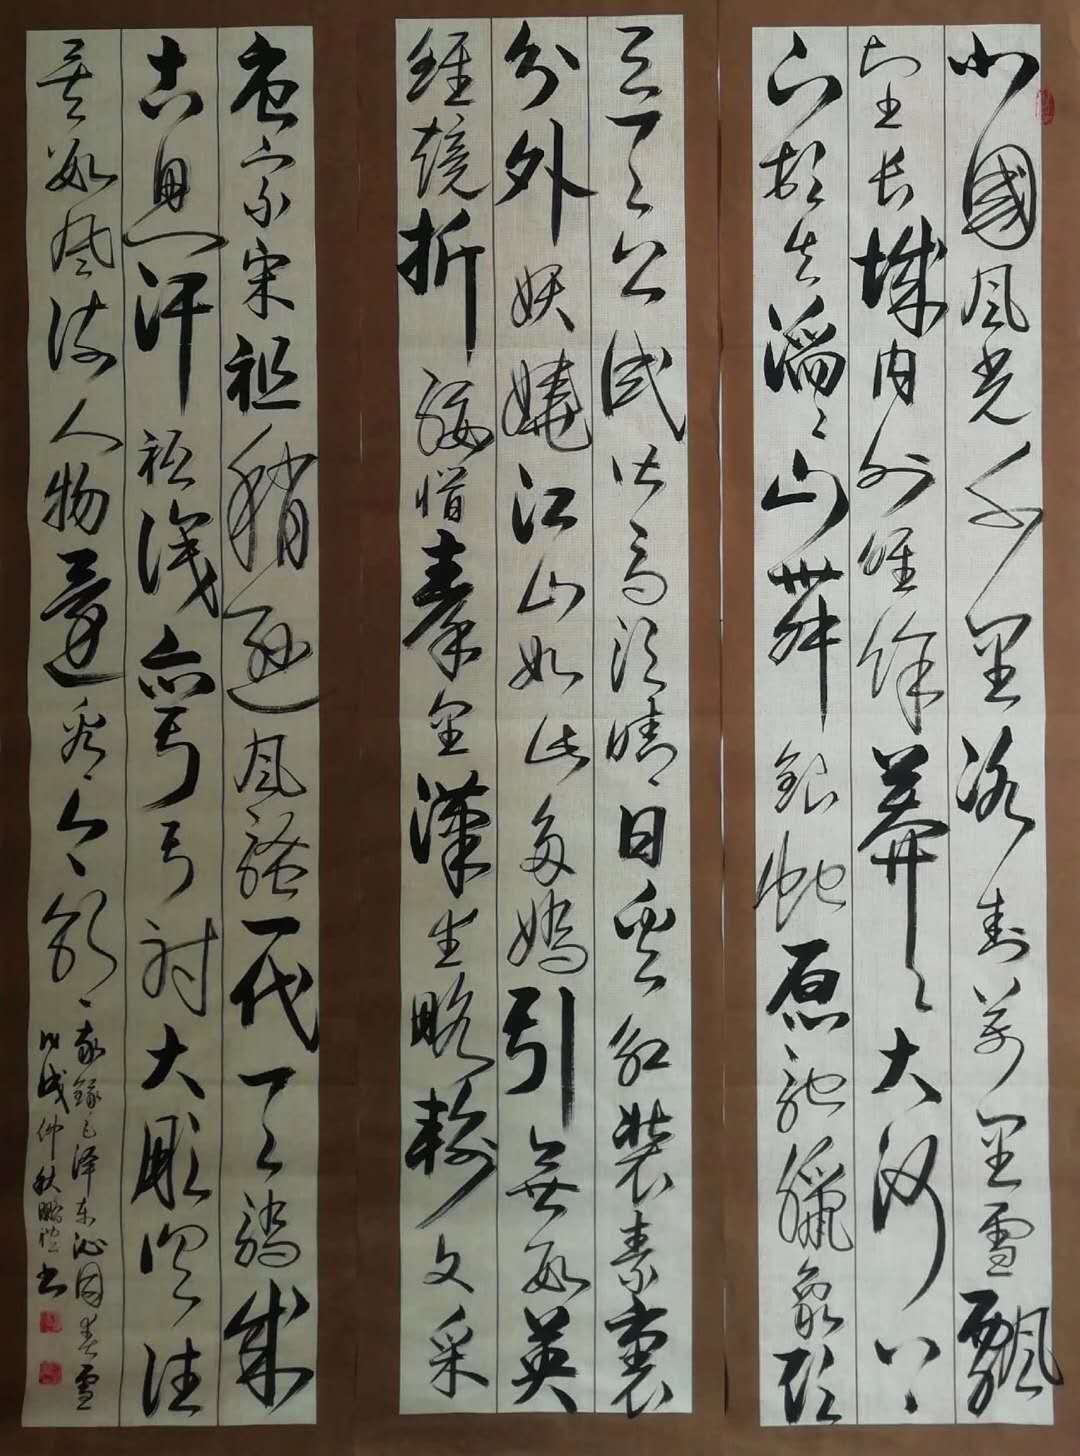 北國风光千里冰封萬里雪飄
望長城内外惟餘莽莽大河上
下頓失滔滔山舞銀蛇原馳蠟象欲
與天公試比高須晴日看紅裝素裹
分外妖嬈江山如此多嬌引無數英
雄競折腰惜秦皇漢武略輸文采
唐宗宋祖稍遜风騷一代天驕成
吉思汗祗識彎弓射大雕俱往
矣數风流人物還看今朝
敬錄毛泽东沁园春雪
戊戌仲秋鹏书